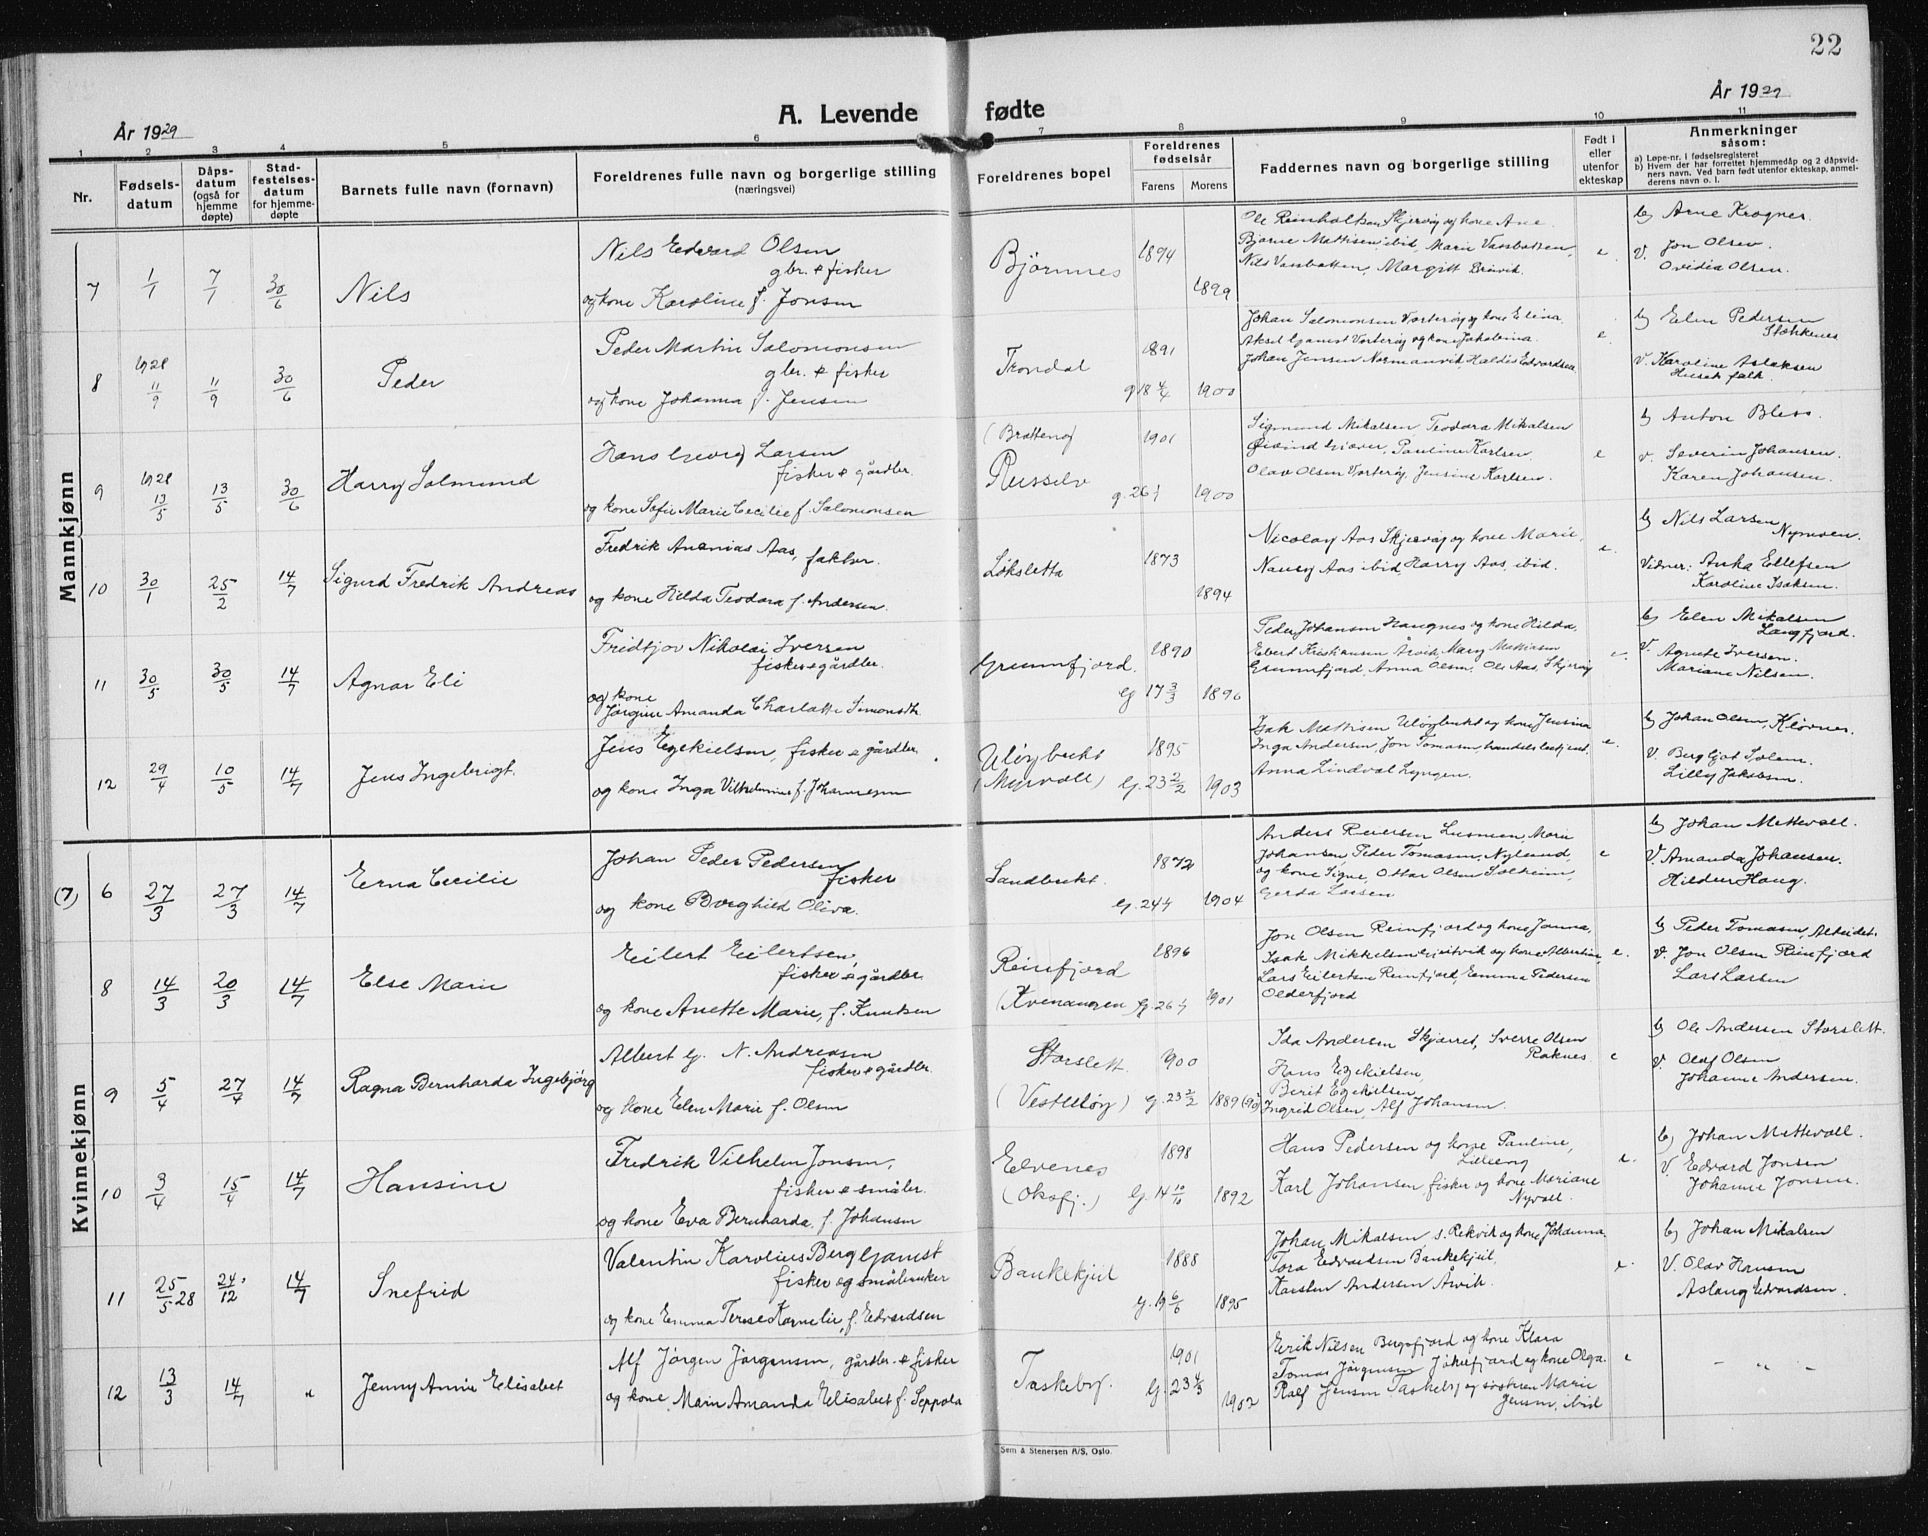 22
År 1929
A. Levende fødte
År 1929
1 2 3 4 5 6 7 8 9 10 11
Nr.
Fødsels-
datum
Dåps-
datum
(også for
hjemme
døpte)
Stad-
festelses-
datum
for hjemme-
døpte
Barnets fulle navn (fornavn)
Foreldrenes fulle navn og borgerlige stilling
(næringsvei)
Foreldrenes bopel
Foreldrenes
fødselsår
Farens Morens
Faddernes navn og borgerlige stilling
Født i
eller
utenfor
ekteskap
Anmerkninger
såsom:
a) Løpe-nr. i fødselsregisteret
b) Hvem der har forrettet hjemmedåp og 2 dåpsvid-
ners navn. Ved barn født utenfor ekteskap, anmel-
derens navn o. l.
Mannkjønn
7 1/1 7/1 30/6 Nils
Nils Edvard Olsen
gbr. & fisker
og kone Karoline f. Jonsen
Bjørnnes 1894 1899
Ole Reinholtsen Skjervøy og kone Ane
Bjarne Mattisen ibid, Marie Vassbotten,
Nils Vassbotten, Margitt
e.
b) Arne Krogner
V. Jon Olsen
Ovidia Olsen.
8 1928 11/9 11/9 30/6 Peder
Peder Martin Salomonsen
gbr. & fisker
og kone Johanna f. Jensen
Trondal 1891 g 18 4/4 1900
Johan Salomonsen Vorterøy og kone Elina
Aksel Gamst Vorterøy og kone Jakobina
Johan Jensen Normannvik Haldis Edvardsen
e
b) Elen Pedersen
Stokkenes
V. Karoline Aslaksen
Huset falk.
9 1928 13/5 13/5 30/6 Harry Salmund
Hans Georg Larsen
fisker & gårdbr.
og kone Sofie Marie Cecilie f. Salomonsen
(Brattenøy
Russelv 1901 g. 26 1900
Sigmund Mikalsen, Teodora Mikalsen
Øivind Giæver, Pauline Karlsen
Olav Olsen Vorterøy, Jensine Karlsen.
e
b) Anton Bless.
v. Severin Johansen.
Karen Johansen.
10 30/1 25/2 14/7 Sigurd Fredrik Andreas
Fredrik Ananias Aas, faktor.
og kone Hilda Teodora f. Andersen.
Løksletta 1873 1894
Nicolay Aas Skjervøy og kone Marie,
Nancy Aas ibid, Harry Aas, ibid.
e.
b) Nils Larsen
Nymoen.
Vidner: Anka Ellefsen
Karoline Isaksen.
11 30/5 30/5 14/7 Agnar Eli
Fridtjov Nikolai Iversen
fisker & gårdbr.
og kone
Jørgine Amanda Charlotte Simonsdtr.
Grunnfjord. 1890 G 17 3/3 1896
Peder Johansen Haugnes og kone Hilda,
Ebert Kristiansen Årvik, Mary Mathisen
Grunnfjord, Anna Olsen, Ole Aas, Skjervøy
e.
b) Elen Mikalsen
Langfjord.
V. Agnete Iversen.
Mariane Nilsen.
12 29/4 10/5 14/7 Jens Ingebrigt.
Jens Ezekielsen, fisker & gårdbr.
og kone Inga Vilhelmine f. Johannesen
Uløybukt
(Myrvoll) 1895 G. 23 2/2 1903
Isak Mattisen Uløybukt og kone Jensina
Inga Andersen, Jon Tomasen, handelsbestjent.
Anna Lindvål Lyngen.
e.
b) Johan Olsen, Kløvnes.
V. Bergljot Solem.
Lilly Jakobsen.
Kvinnekjønn
(7) 6 27/3 27/3 14/7 Erna Cecilie
Johan Peder Pedersen
fisker
og kone Borghild Oliva.
Sandbukt. 1872 G. 24 1904
Anders Reiersen Marie
Johansen, Peder Tomasen, Nylund,
og kone Signe, Ottar Olsen Solheim,
Gerda Larsen
e
b) Johan Mettevoll.
V. Amanda Johansen.
Hildur Haug.
8 14/3 20/3 14/7 Else Marie
Eilert Eilertsen,
fisker & gårdbr.
og kone Anette Marie, f. Knutsen
Reinfjord
(Kvenangen 1896 G. 26 1901
Jon Olsen Reinfjord og kone Janna,
Isak Mikkelsen og kone Albertine
Lars Eilertsen Reinfjord, Emma Pedersen
Olderfjord
e.
b) Peder Tomasen, Alteidet.
V. Jon Olsen Reinfjord
Lars Larsen
9 5/4 27/4 14/7 Ragna Bernharda Ingebjørg
Albert G. N. Andreasen
fisker & gårdbr.
og kone Elen Marie f. Olsen
Storslett
(Vestuløy) 1900 G. 23 2/2 1889 (90)
Ida Andersen Skjæret, Sverre Olsen
Raknes
Hans Ezekielsen,
Berit Ezekielsen,
Ingrid Olsen, Alf Johansen.
e
b) Ole Andersen Storslett.
V. Olaf Olsen
Johanne Andersen.
10 3/4 15/4 14/7 Hansine
Fredrik Vilhelm Jonsen,
fisker & småbr.
og kone Eva Bernharda f. Johansen
Elvenes
(Oksfj.) 1898 G. 14 10/10 1892
Hans Pedersen og kone Pauline,
Lilleeng
Karl Johansen, fisker og kone Mariane
Nyvoll.
e.
b) Johan Mettevoll.
V. Edvard Jonsen
Johanne Jonsen.
11 25/5 28 24/12 14/7 Snefrid
Valentin Karolius Berg Gamst
fisker og småbruker
og kone Emma Terese Kornelie, f. Edvardsen
Bankekjeil 1888 G. 19 6/6 1895
Johan Mikalsen, s. Rekvik og kone Johanna
Tora Edvardsen Bankekjeil,
Karsten Andersen Årvik.
e.
b) Johan Mikalsen
V. Olav Hansen
Aslaug Edvardsen.
12 13/3 14/7 " Jenny Annie Elisabet
Alf Jørgen Jørgensen, gårdbr. & fisker
og kone Marie Amanda Elisabet f. Seppola
Taskeby. 1901 G. 23 4/3 1902
Erik Nilsen Bergsfjord og kone Klara
Tomas Jørgensen Jøkelfjord og kone Olga.
Ralf Jensen Taskeby og søsteren Marie
Jensen, ibid
e
- " -
Sem & Stenersen A/S, Oslo.